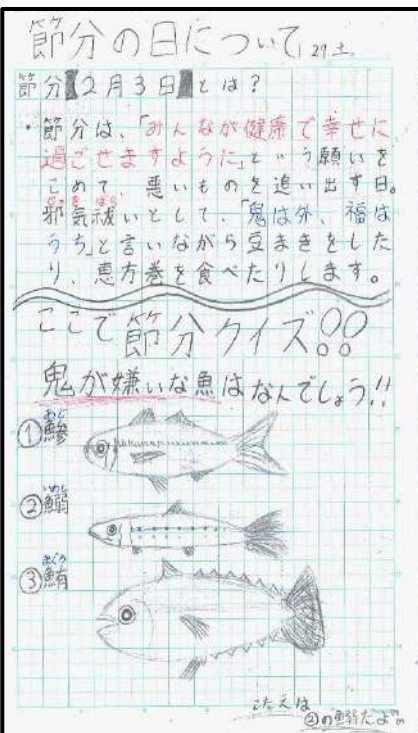 節分の日について 29 土
節分【2月3日】とは?
・節分は、「みんなが健康で幸せに
過ごせますように」という願いを
こめて、悪いものを追い出す日。
邪気祓いとして、「鬼は外、福は
うち」と言いながら豆まきをした
り、恵方巻を食べたりします。
ここで節分クイズ!!
鬼が嫌いな魚はなんでしょう!!
①鯵 あじ
②鰯 いわし
③鮪 まぐろ
こたえは
②の鰯だよ